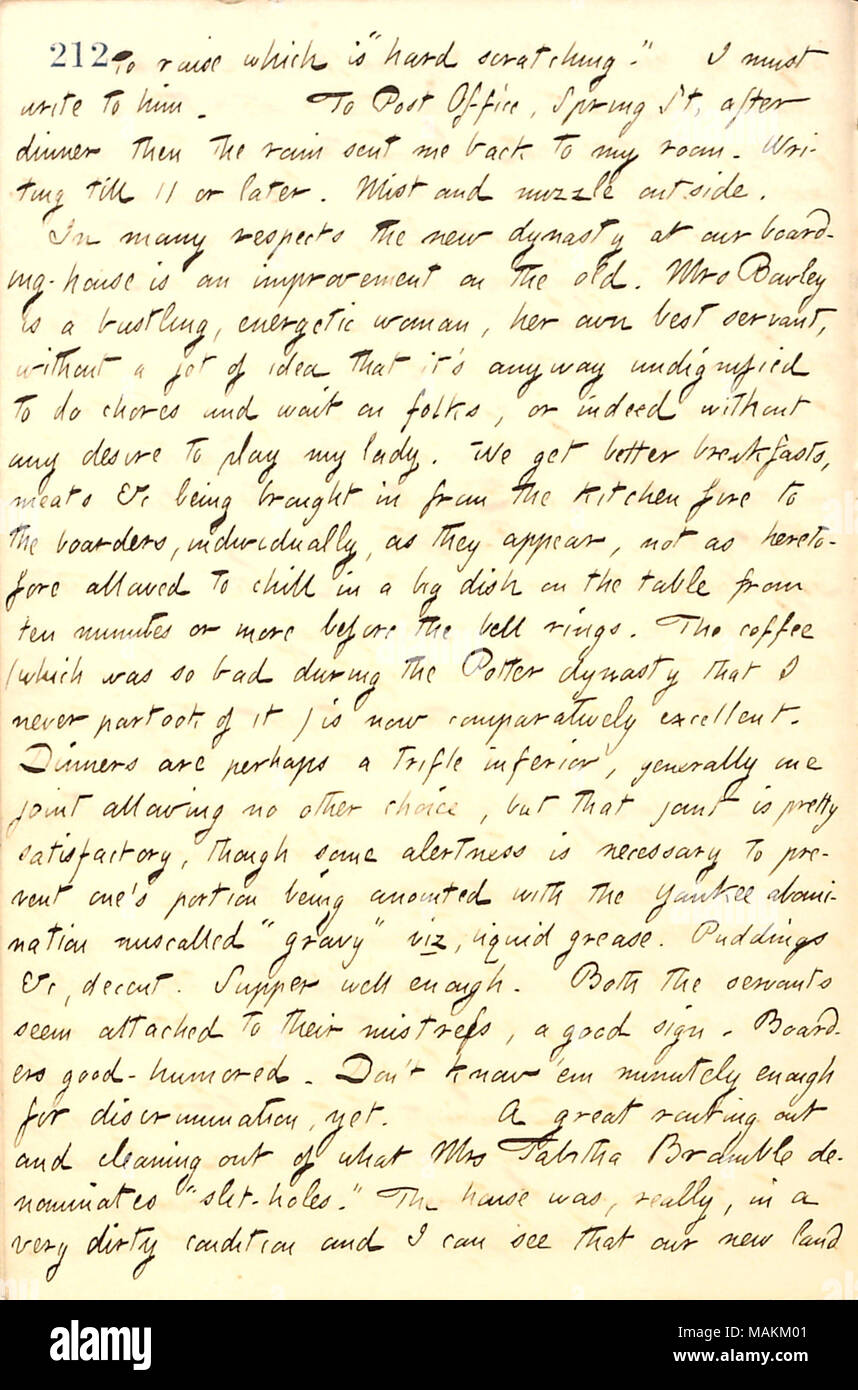 212 to raise which is "hard scratching." I must
write to him. To Post Office, Spring St, after
dinner then the rain sent me back to my room. Wri-
ting till 11 or later. Mist and muzzle outside.
In many respects the new dynasty at our board-
ing-house is an improvement on the old. Mrs Bowley
is a bustling, energetic woman, her own best servant,
without a jot of idea that it's anyway undignified
to do chores and wait on folks, or indeed without
any desire to play my lady. We get better breakfasts,
meats &c being brought in from the kitchen fire to
the boarders, individually, as they appear, not as hereto-
fore allowed to chill in a big dish on the table from
ten minutes or more before the bell rings. The coffee
(which was so bad during the Potter dynasty that I
never partook of it) is now comparatively excellent.
Dinners are perhaps a trifle inferior, generally one
joint allowing no other choice, but that joint is pretty
satisfactory, though some alertness is necessary to pre-
vent one's portion being anointed with the Yankee abomi-
nation miscalled "gravy" viz, liquid grease. Puddings
&c, decent. Supper well enough. Both the servants
seem attached to their mistress, a good sign. Board-
ers good-humored. Don't know 'em minutely enough
for discrimination, yet. A great routing out
and cleaning out of what Mrs Tabitha Bramble de-
nominates "slit-holes." The house was, really, in a
very dirty condition and I can see that our new land
alamy
Image ID: MAKM01
www.alamy.com